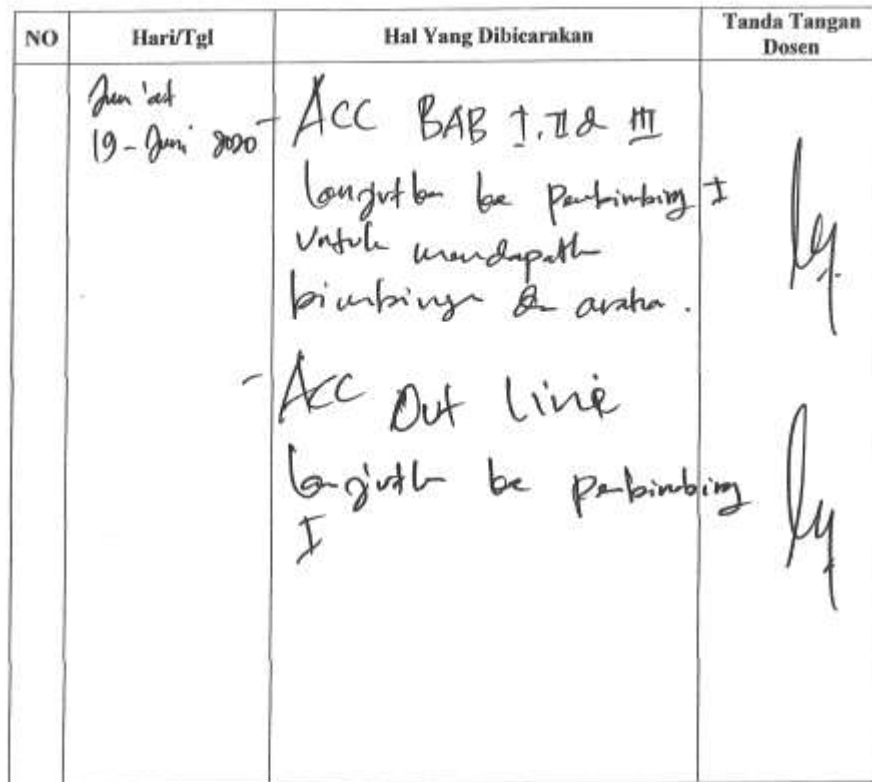 NO Hari/Tgl Hal Yang Dibicarakan Tanda Tangan Dosen
Jum'at
19 - Juni 2020
- ACC BAB I, II & III
lanjutkan ke pembimbing I
untuk mendapatk
bimbingan & arahan.
- ACC Out line
lanjutk ke pembimbing
I